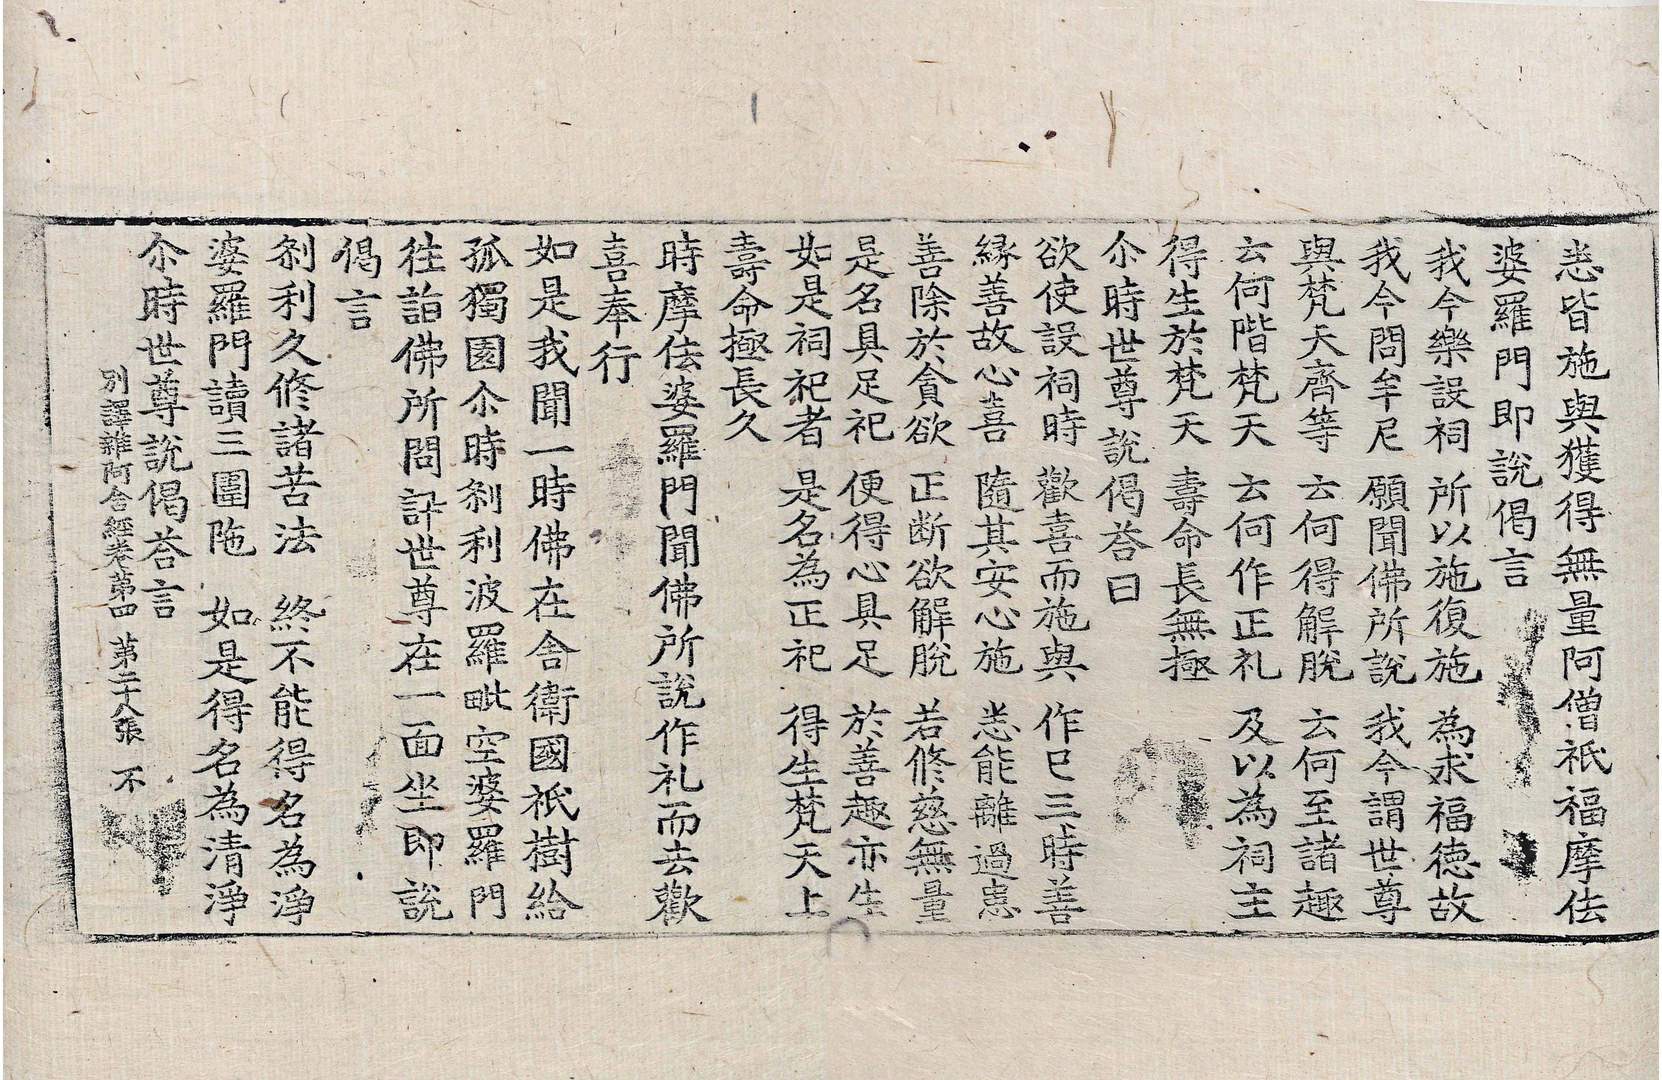 悉皆施與獲得無量阿僧祇福摩佉
婆羅門即說偈言
我今樂設祠 所以施復施 為求福德故
我今問牟尼 願聞佛所說 我今謂世尊
與梵天齊等 云何得解脫 云何至諸趣
云何階梵天 云何作正礼 及以為祠主
得生於梵天 壽命長無極
尒時世尊說偈荅曰
欲使設祠時 歡喜而施與 作已三時善
縁善故心喜 隨其安心施 悉能離過恚
善除於貪欲 正断欲解脫 若修慈無量
是名具足祀 便得心具足 於善趣亦生
如是祠祀者 是名為正祀 得生梵天上
壽命極長久
時摩佉婆羅門聞佛所說作礼而去歡
喜奉行
如是我聞一時佛在舍衛國祇樹給
孤獨園尒時刹利波羅毗空婆羅門
往詣佛所問訊世尊在一面坐即說
偈言
刹利久修諸苦法 終不能得名為淨
婆羅門讀三圍陁 如是得名為清淨
尒時世尊說偈荅言
別譯雜阿含經卷第四 第二十八張 不